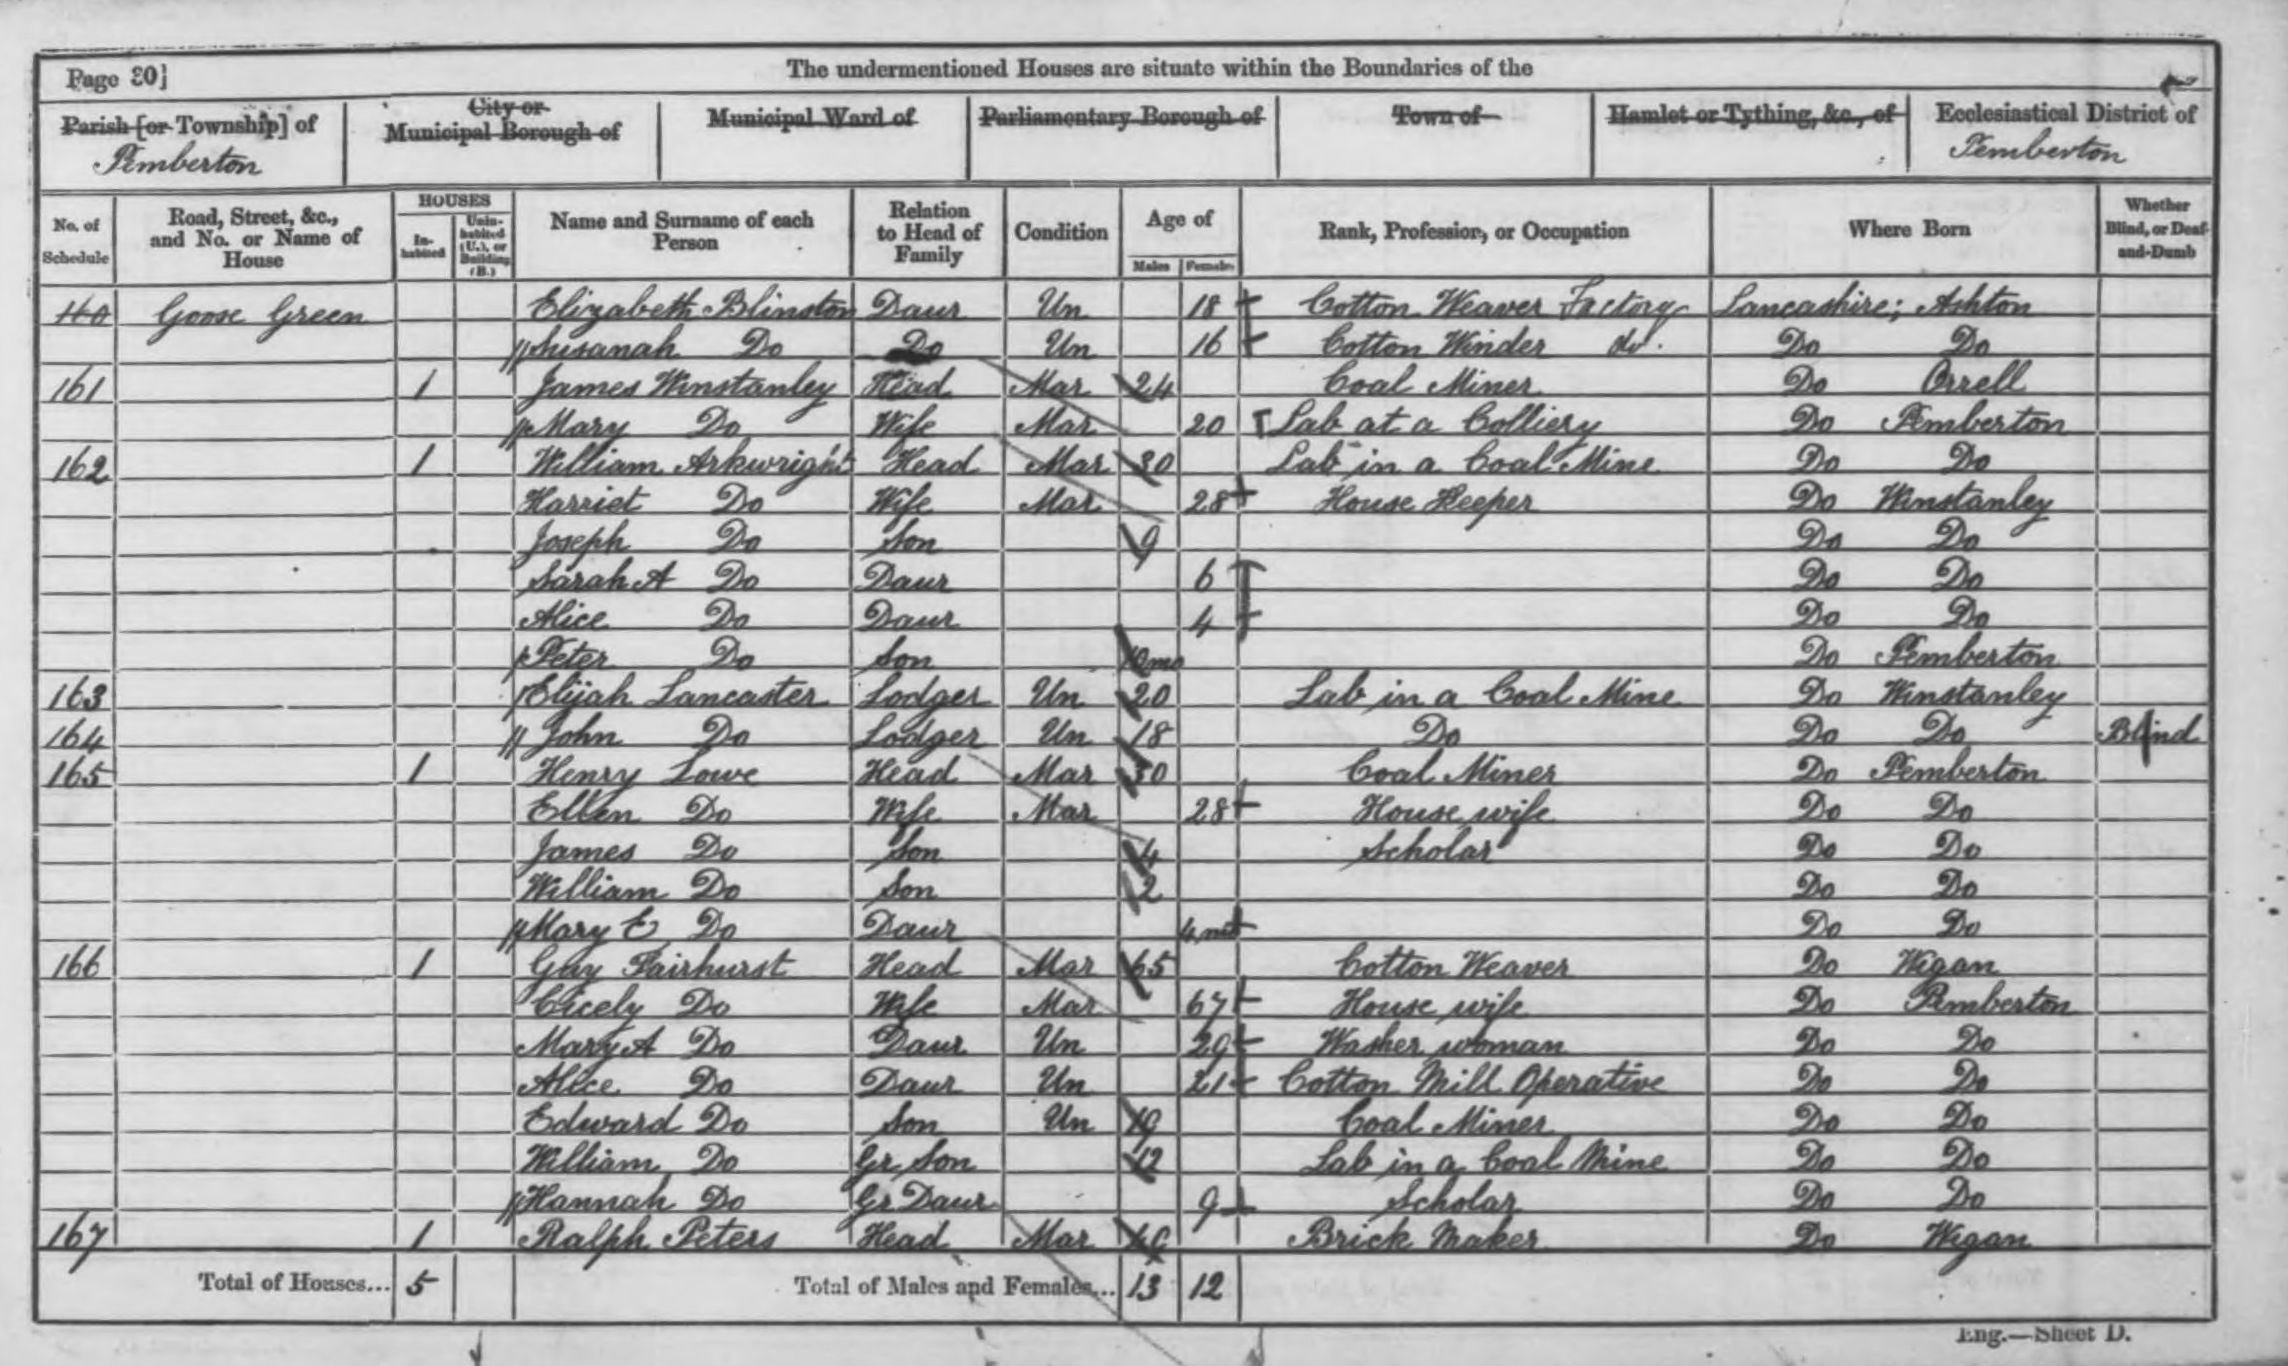 Page 30]
The undermentioned Houses are situate within the Boundaries of the
Parish [or Township] of
Pemberton
City or
Municipal Borough of
Municipal Ward of
Parliamentary Borough of
Town of
Hamlet or Tything, &c., of
Ecclesiastical District of
Pemberton
No. of Schedule
Road, Street, &c., and No. or Name of House
HOUSES
In-habited
Unin-habited (U.), or Building (B.)
Name and Surname of each Person
Relation to Head of Family
Condition
Age of
Males
Females
Rank, Profession, or Occupation
Where Born
Whether Blind, or Deaf-and-Dumb
Goose Green Elizabeth Blinston Daur Un 18 Cotton Weaver Factory Lancashire; Ashton
Susanah Do Do Un 16 Cotton Winder do. Do Do
161 1 James Winstanley Head Mar 24 Coal Miner Do Orrell
Mary Do Wife Mar 20 Lab at a Colliery Do Pemberton
162 1 William Arkwright Head Mar 30 Lab in a Coal Mine Do Do
Harriet Do Wife Mar 28 House Keeper Do Winstanley
Joseph Do Son 9 Do Do
Sarah A Do Daur 6 Do Do
Alice Do Daur 4 Do Do
Peter Do Son 10mo Do Pemberton
163 Elijah Lancaster Lodger Un 20 Lab in a Coal Mine Do Winstanley
164 John Do Lodger Un 18 Do Do Do Blind
165 1 Henry Lowe Head Mar 30 Coal Miner Do Pemberton
Ellen Do Wife Mar 28 House wife Do Do
James Do Son 4 Scholar Do Do
William Do Son 2 Do Do
Mary E Do Daur 4 Do Do
166 1 Guy Fairhurst Head Mar 65 Cotton Weaver Do Wigan
Cicely Do Wife Mar 67 House wife Do Pemberton
Mary A Do Daur Un 29 Washer woman Do Do
Alice Do Daur Un 21 Cotton Mill Operative Do Do
Edward Do Son Un 19 Coal Miner Do Do
William Do Gr Son 12 Lab in a Coal Mine Do Do
Hannah Do Gr Daur 9 Scholar Do Do
167 1 Ralph Peters Head Mar Brick Maker Do Wigan
Total of Houses... 5 Total of Males and Females... 13 12
Eng.—Sheet D.